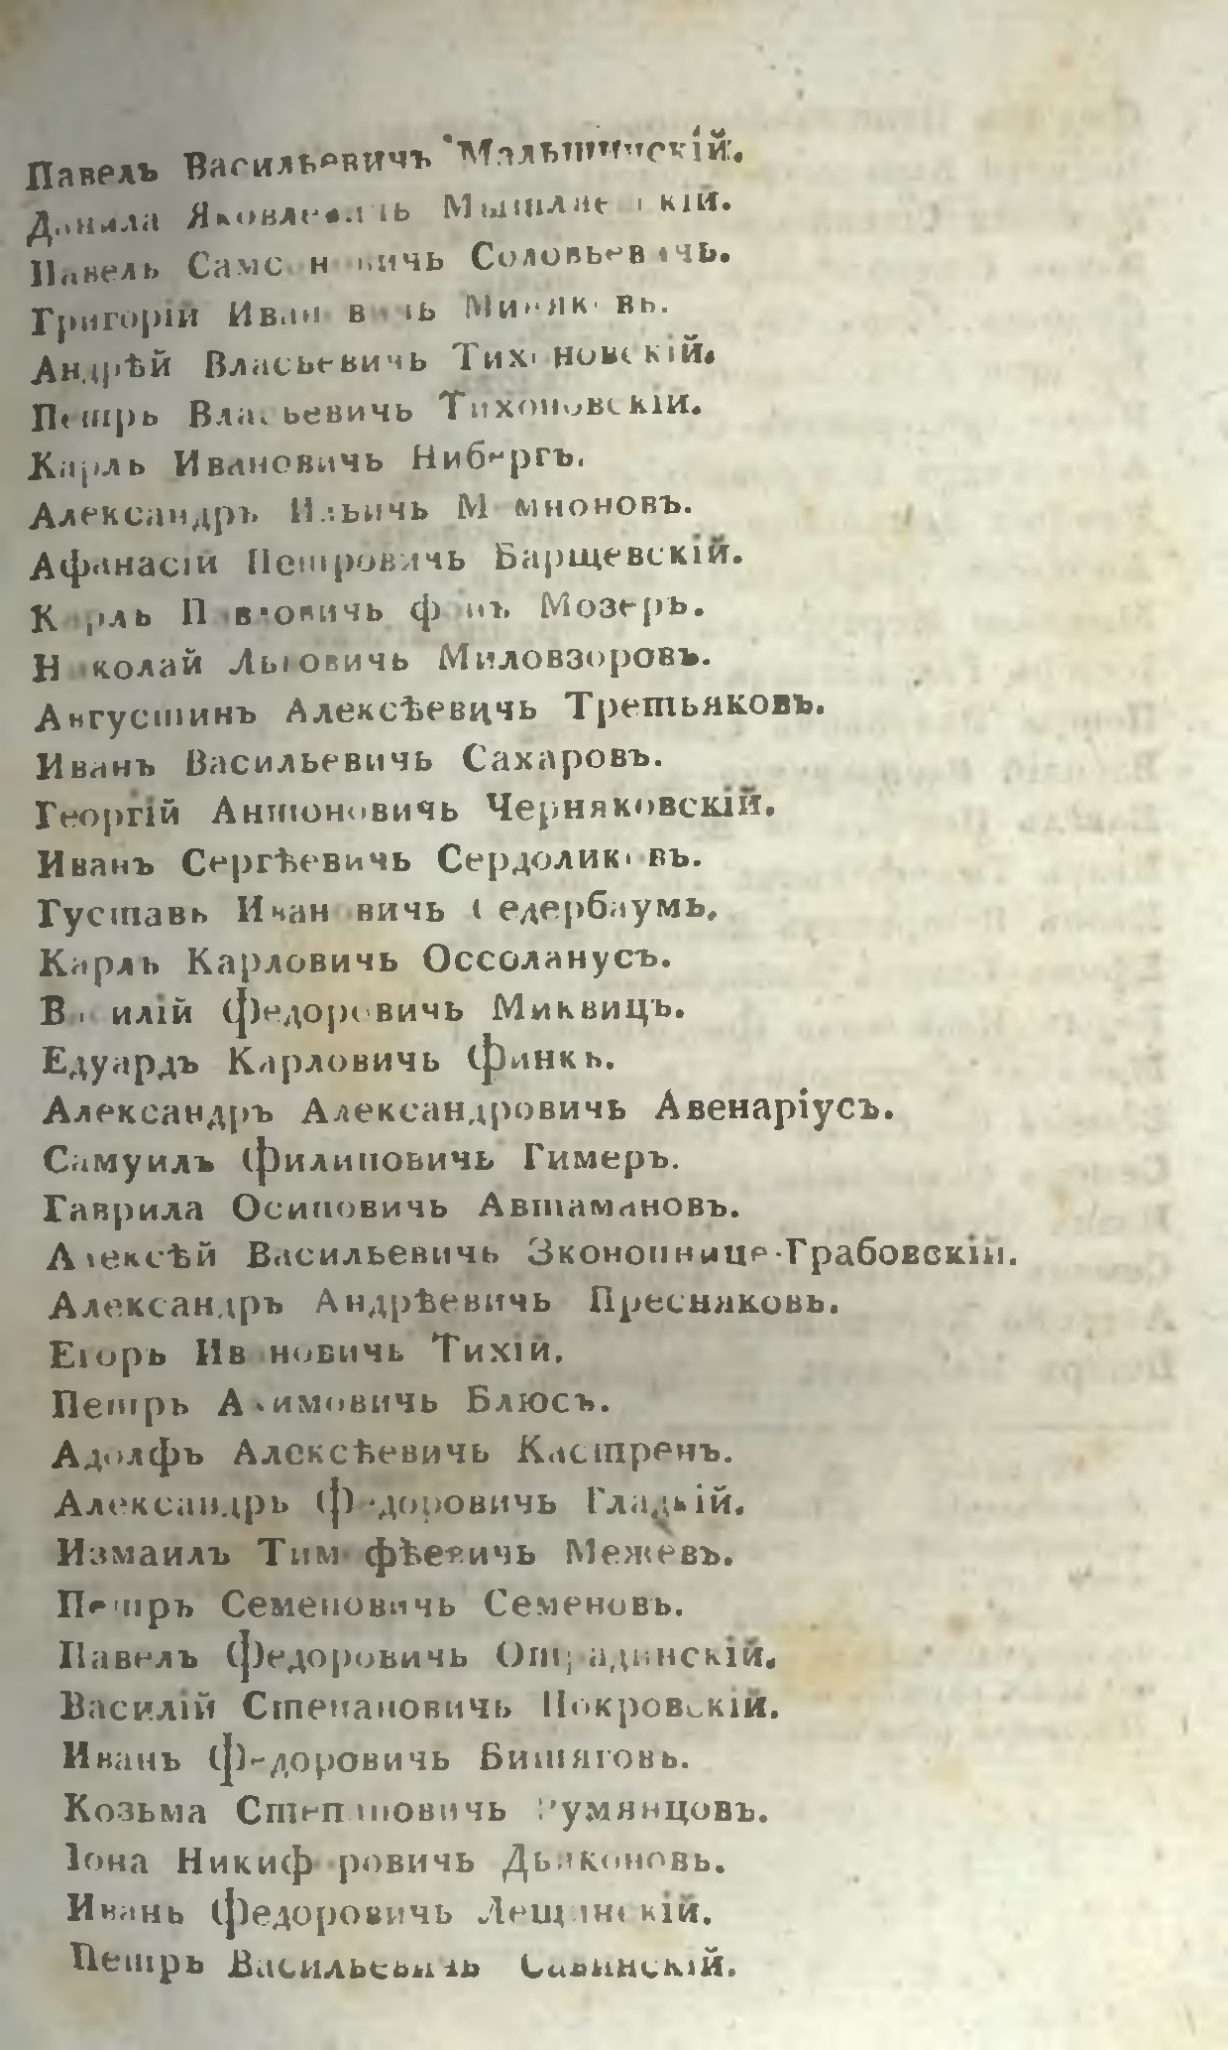 Павелъ Васильевичъ Мальшинскій.
Данила Яковлевичь
Павелъ Самсоновичь Соловьевичь.
Григорій Ивановичь
Андрѣй Власьевичь Тихоновскій.
Петръ Власьевичь Тихоновскій.
Карлъ Ивановичь Нибергъ.
Александръ Ильичь Мамноновъ.
Афанасій Петровичь Барщевскій.
Карлъ Павловичь фонъ Мозеръ.
Николай Льговичь Миловзоровъ.
Августинъ Алексѣевичь Третьяковъ.
Иванъ Васильевичь Сахаровъ.
Георгій Антоновичь Черняковскій.
Иванъ Сергѣевичь Сердоликовъ.
Густавъ Ивановичь Седербаумъ.
Карлъ Карловичь Оссоланусъ.
Василій Федоровичь Миквицъ.
Едуардъ Карловичь Финкъ.
Александръ Александровичь Авенаріусъ.
Самуилъ Филиповичь Гимеръ.
Гаврила Осиповичь Автамановъ.
Алексѣй Васильевичь Зконопнице-Грабовскій.
Александръ Андрѣевичь Пресняковъ.
Егоръ Ивановичь Тихій.
Петръ Акимовичь Блюсъ.
Адолфъ Алексѣевичь Кастренъ.
Александръ Федоровичь Гладкій.
Измаилъ Тимофѣевичь Межевъ.
Петръ Семеновичь Семеновъ.
Павелъ Федоровичь Отрадинскій.
Василій Степановичь Покровскій.
Иванъ Федоровичь Битяговъ.
Козьма Степановичь Румянцовъ.
Іона Никифоровичь Дьяконовъ.
Иванъ Федоровичь Лещинскій.
Петръ Васильевичь Савинскій.